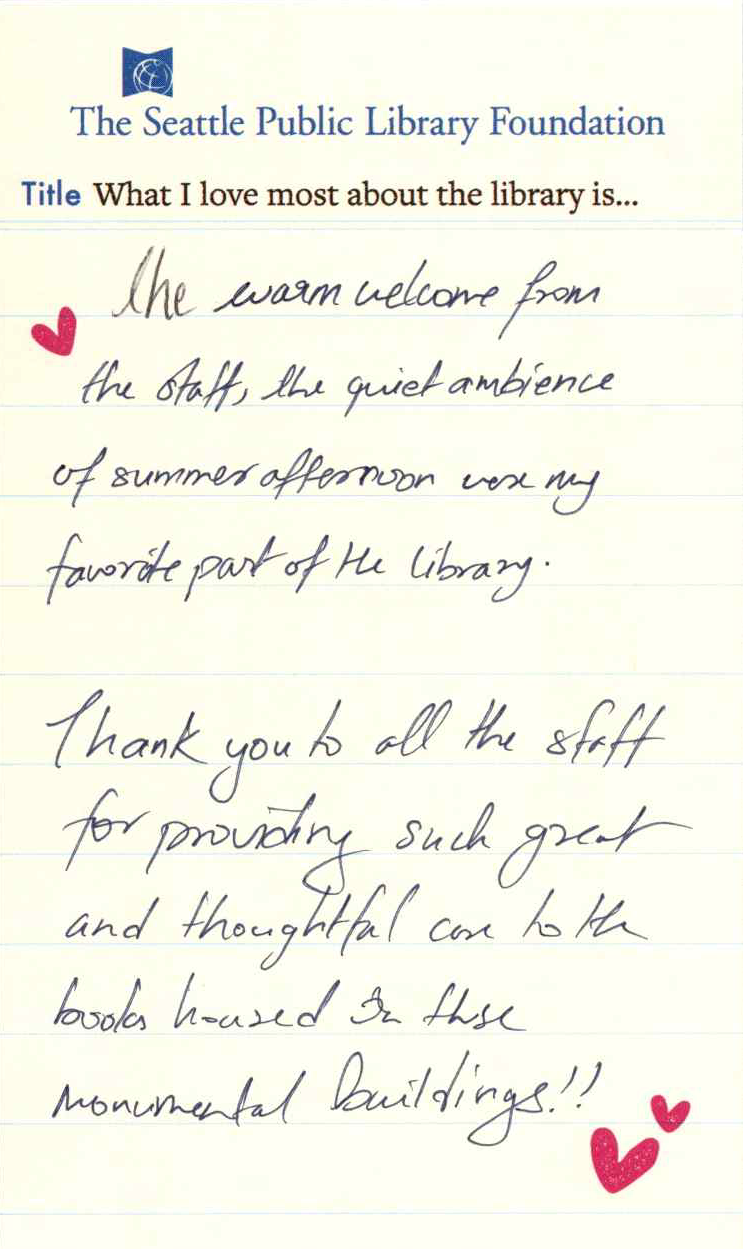 The Seattle Public Library Foundation
Title What I love most about the library is...
the warm welcome from
the staff, the quiet ambience
of summer afternoon were my
favorite part of the library.
Thank you to all the staff
for providing such great
and thoughtful care to the
books housed in these
monumental buildings!!